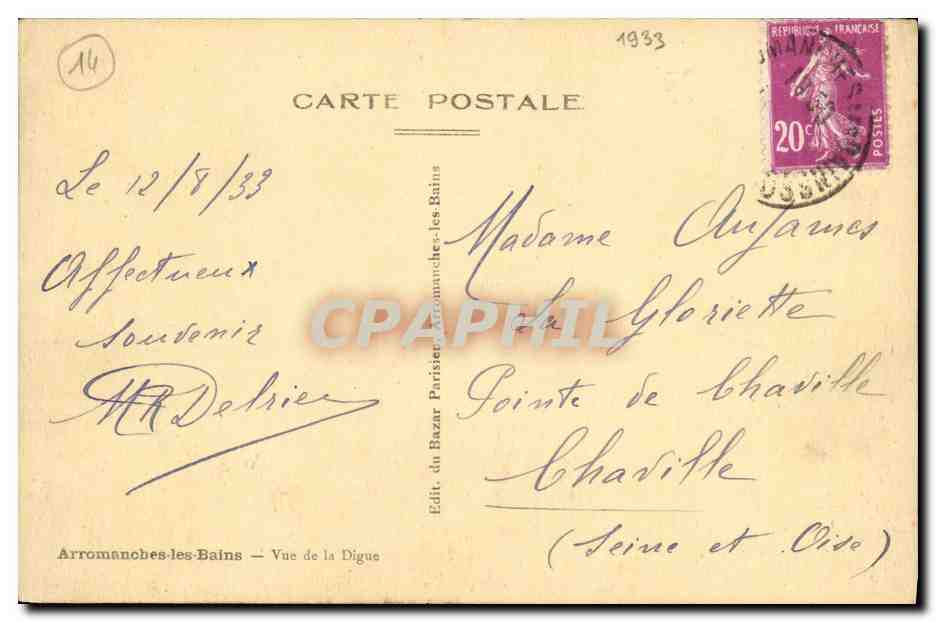 14
1933
CARTE POSTALE
REPUBLIQUE FRANÇAISE
20c
POSTES
Le 12/8/33
Affectueux
souvenir
Edit. du Bazar Parisien, Arromanches-les-Bains
Madame Aujames
La Gloriette
Pointe de Chaville
Chaville
(Seine et Oise)
CPAPHIL
Arromanches-les-Bains — Vue de la Digue